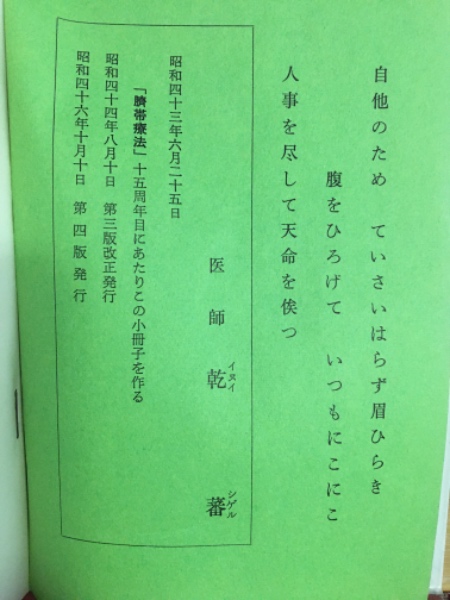 自他のため　ていさいはらず眉ひらき
腹をひろげて　いつもにこにこ
人事を尽して天命を俟つ
医師　乾　蕃
イヌイ　シゲル
昭和四十三年六月二十五日
「臍帯療法」十五周年目にあたりこの小冊子を作る
昭和四十四年八月十日　第三版改正発行
昭和四十六年十月十日　第四版発行